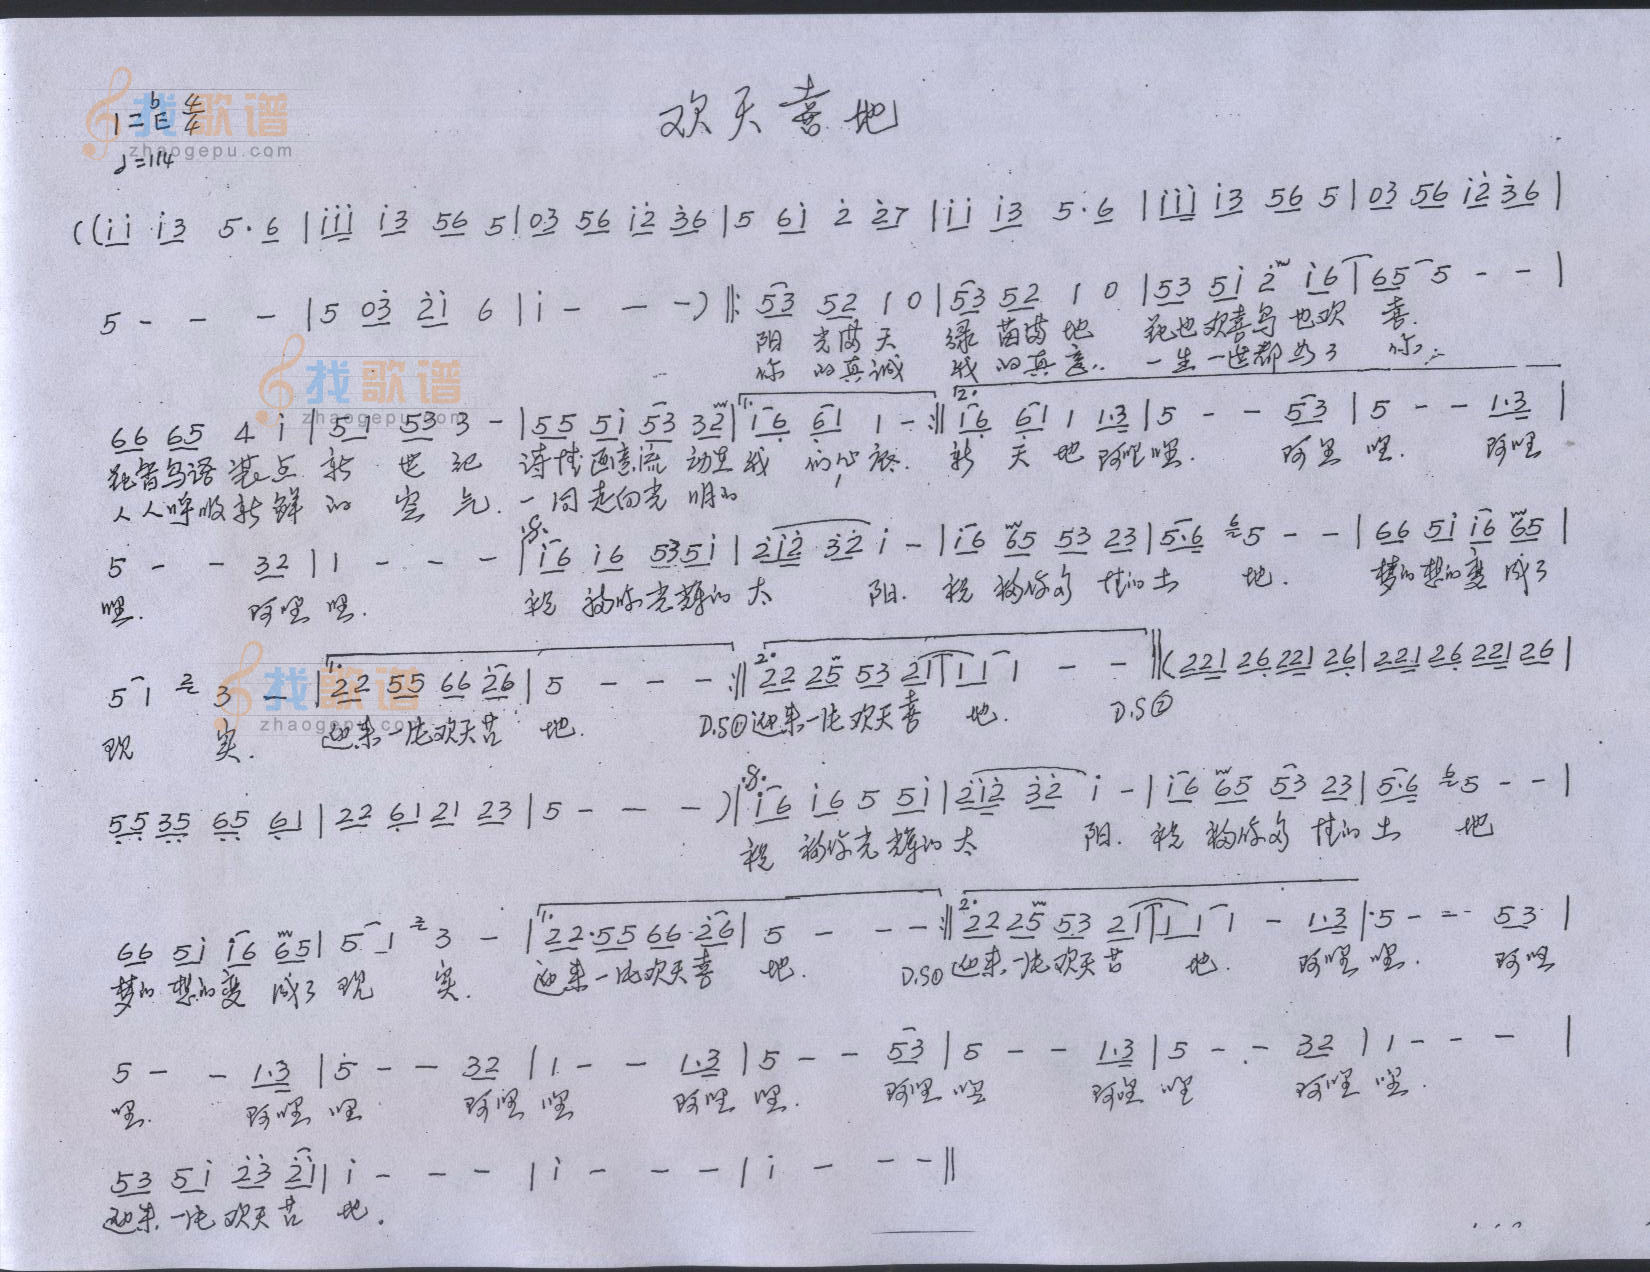 欢天喜地
1=ᵇE 4/4
♩=114
找歌谱
zhaogepu.com
((i̇i̇ i̇3 5·6 | i̇i̇i̇ i̇3 56 5 | 03 56 i̇2̇ 3̇6 | 5 6i̇ 2̇ 2̇7 | i̇i̇ i̇3 5·6 | i̇i̇i̇ i̇3 56 5 | 03 56 i̇2̇ 3̇6 |
5 - - - | 5 03̇ 2̇i̇ 6 | i̇ - - -) ‖: 53 52 1 0 | 53 52 1 0 | 53 5i̇ 2̇ i̇6 | 65 5 - - |
阳 光满天 绿茵茵地 花也欢喜鸟也欢 喜.
你 的真诚 我的真意.. 一生一世都为了 你..
找歌谱
zhaogepu.com
66 65 4 i̇ | 51 53 3 - | 55 5i̇ 53 32̇ | 1. i̇6 61 1 - :‖ 2. i̇6 61 1 1·3 | 5 - - 53 | 5 - - 1·3 |
花香鸟语 装点 新 世纪 诗情画意流 动在我 们心底. 新 天 地 阿哩哩. 阿里哩. 阿哩
人人呼吸新鲜的 空气. 一同走向光 明的
5 - - 32 | 1 - - - | i̇6 i̇6 535i̇ | 2̇i̇2̇ 3̇2̇ i̇ - | i̇6 65 53 23 | 5·6 5 - - | 66 5i̇ i̇6 65 |
哩. 阿哩哩. 祝 福你光辉的太 阳. 祝 福你多 情的土 地. 梦的想的变 成了
找歌谱
zhaogepu.com
5 1 2 3 - | 1. 22 55 66 2̇6 | 5 - - - :‖ 2. 22 25 53 21 | 11 1 - - ‖ (221 26 221 26 | 221 26 221 26 |
现 实. 迎来一片欢天喜 地. D.S① 迎来一片欢天喜 地. D.S②
55 35 65 61 | 22 61 21 23 | 5 - - - ) | i̇6 i̇6 5 5i̇ | 2̇i̇2̇ 3̇2̇ i̇ - | i̇6 65 53 23 | 5·6 5 - - |
祝 福你光辉的太 阳. 祝 福你多 情的土 地
66 5i̇ i̇6 65 | 5 1 2 3 - | 1. 22·55 66·2̇6 | 5 - - - :‖ 2. 22 25 53 21 | 11 1 - 1·3 | 5 - - 53 |
梦的 想的变 成了 现 实. 迎来一片欢天喜 地. D.S① 迎来一片欢天喜 地. 阿哩哩. 阿哩
5 - - 1·3 | 5 - - 32 | 1 - - 1·3 | 5 - - 53 | 5 - - 1·3 | 5 - - 32 | 1 - - - |
哩. 阿哩哩 阿哩哩 阿哩哩. 阿哩哩 阿哩哩 阿哩哩.
53 5i̇ 2̇3̇ 2̇i̇ | i̇ - - - | i̇ - - - | i̇ - - - ‖
迎来一片欢天喜 地.